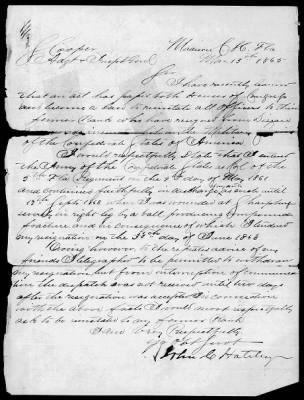 S Cooper Madison C. H. Fla
Adgt & Insptr Genl Mar 13th 1865
Sir
I have recently learned
that an act has passed both Houses of Congress
and become a law to reinstate all officers to their
former Rank who have resigned from disease
in the Military
of the Confederate States of America
I would respectfully state that I entered
the Army of the Confederate States
5th Fla Regiment on the 8th day of May 1861
and continued faithfully in discharge until
17th Sept 1862 when I was wounded at Sharpsburg
in right leg by a ball, producing compound
fracture and in consequence of which I tendered
my resignation on the 25th day of June 1863
Owing however to the advice of my
friends I telegraphed to be permitted to withdraw
my resignation but from interruption of communica
tion the dispatch was not received until two days
after the resignation was accepted In connection
with the above facts I would most respectfully
ask to be reinstated to my former Rank
I am Very Respectfully
Yo Obt Servt
John C Hateley